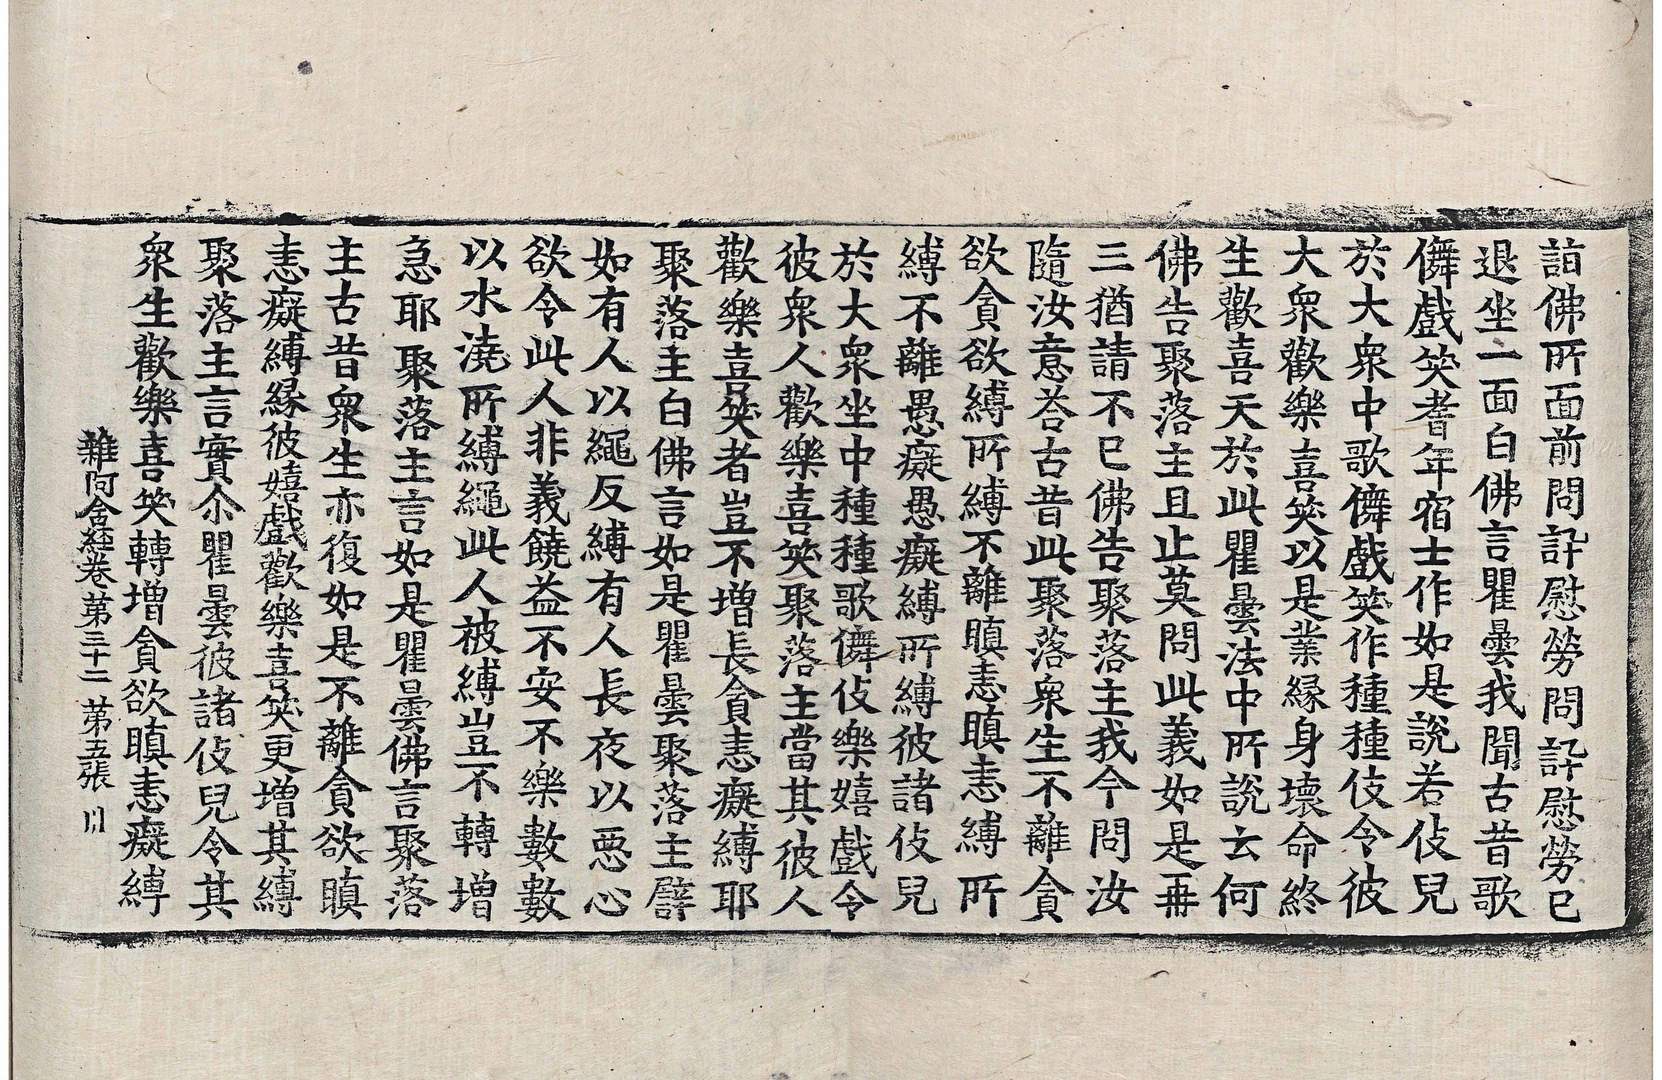 詣佛所面前問訊慰勞問訊慰勞已
退坐一面白佛言瞿曇我聞古昔歌
儛戲笑耆年宿士作如是說若伎兒
於大衆中歌儛戲笑作種種伎令彼
大衆歡樂喜笑以是業緣身壞命終
生歡喜天於此瞿曇法中所說云何
佛告聚落主且止莫問此義如是再
三猶請不已佛告聚落主我今問汝
隨汝意荅古昔此聚落衆生不離貪
欲貪欲縛所縛不離瞋恚瞋恚縛所
縛不離愚癡愚癡縛所縛彼諸伎兒
於大衆坐中種種歌儛伎樂嬉戲令
彼衆人歡樂喜笑聚落主當其彼人
歡樂喜笑者豈不增長貪恚癡縛耶
聚落主白佛言如是瞿曇聚落主譬
如有人以繩反縛有人長夜以惡心
欲令此人非義饒益不安不樂數數
以水澆所縛繩此人被縛豈不轉增
急耶聚落主言如是瞿曇佛言聚落
主古昔衆生亦復如是不離貪欲瞋
恚癡縛緣彼嬉戲歡樂喜笑更增其縛
聚落主言實尒瞿曇彼諸伎兒令其
衆生歡樂喜笑轉增貪欲瞋恚癡縛
雜阿含經卷第三十二 第五張 川